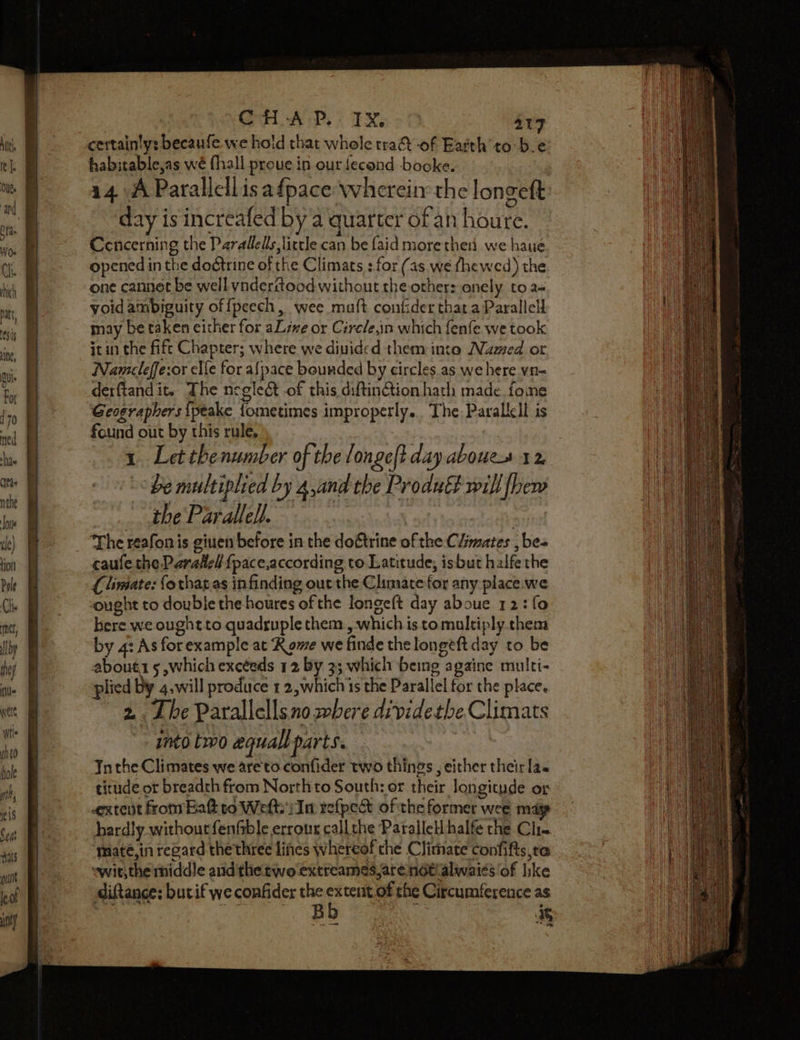 CHAP. IX. 217
certainly: becauſe we hold that whole tract of Earth to b.e
habitable,as wé ſhall proue in our ſecond booke.
14 A Parallell is a ſpace wherein the longeſt
day is increaſed by a quarter of an houre.
Concerning the Parallells,little can be ſaid more then we haue
opened in the doctrine of the Climats : for (as we ſhewed) the
one cannot be well vnderſtood without the other: onely to a-
void ambiguity of ſpeech, wee muſt conſider that a Parallell
may be taken either for a Line or Circle,in which ſenſe we took
it in the fift Chapter; where we diuided them into Named or
Nameleſſe:or elſe for a ſpace bounded by circles as we here vn-
derſtand it. The neglect of this diſtinction hath made ſome
Geographers ſpeake ſometimes improperly. The Parallell is
found out by this rule,
1 Let the number of the longeſt day aboue 12
be multiplied by 4,and the Product will ſhew
the Parallell.
The reaſon is giuen before in the doctrine of the Climates , be-
cauſe the Parallell ſpace,according to Latitude, is but halfe the
Climate: ſo that as in finding out the Climate for any place we
ought to double the houres of the longeſt day aboue 12: ſo
here we ought to quadruple them , which is to multiply them
by 4: As for example at Rome we finde the longeſt day to be
about 15 ,which exceeds 12 by 3; which being againe multi-
plied by 4,will produce 12,which is the Parallel for the place.
2 The Parallells no where divide the Climats
into two equall parts.
In the Climates we are to conſider two things , either their la-
titude or breadth from North to South: or their longitude or
extent from Eaſt to Weſt: In reſpect of the former wee may
hardly without ſenſible errour call the Parallell halfe the Cli-
mate,in regard the three lines whereof the Climate conſiſts,to
wit,the middle and the two extreames,are not alwaies of like
diſtance: but if we conſider the extent of the Circumference as
Bb is